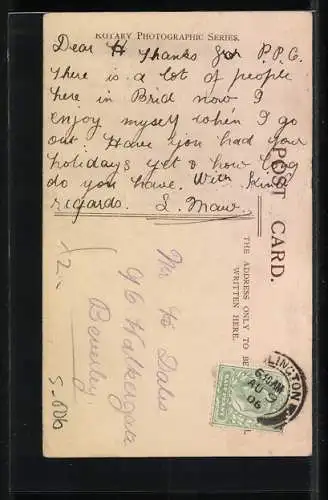 ROTARY PHOTOGRAPHIC SERIES.
Dear H Thanks for P.P.C.
There is a lot of people
here in Brid now I
enjoy myself when I go
out. Have you had your
holidays yet & how long
do you have. With kind
regards. L. Maw.
POST CARD.
THE ADDRESS ONLY TO BE
WRITTEN HERE.
Mr H Dales
96 Walkergate
Beverley
LINGTON
6 30 AM
AU 9
06